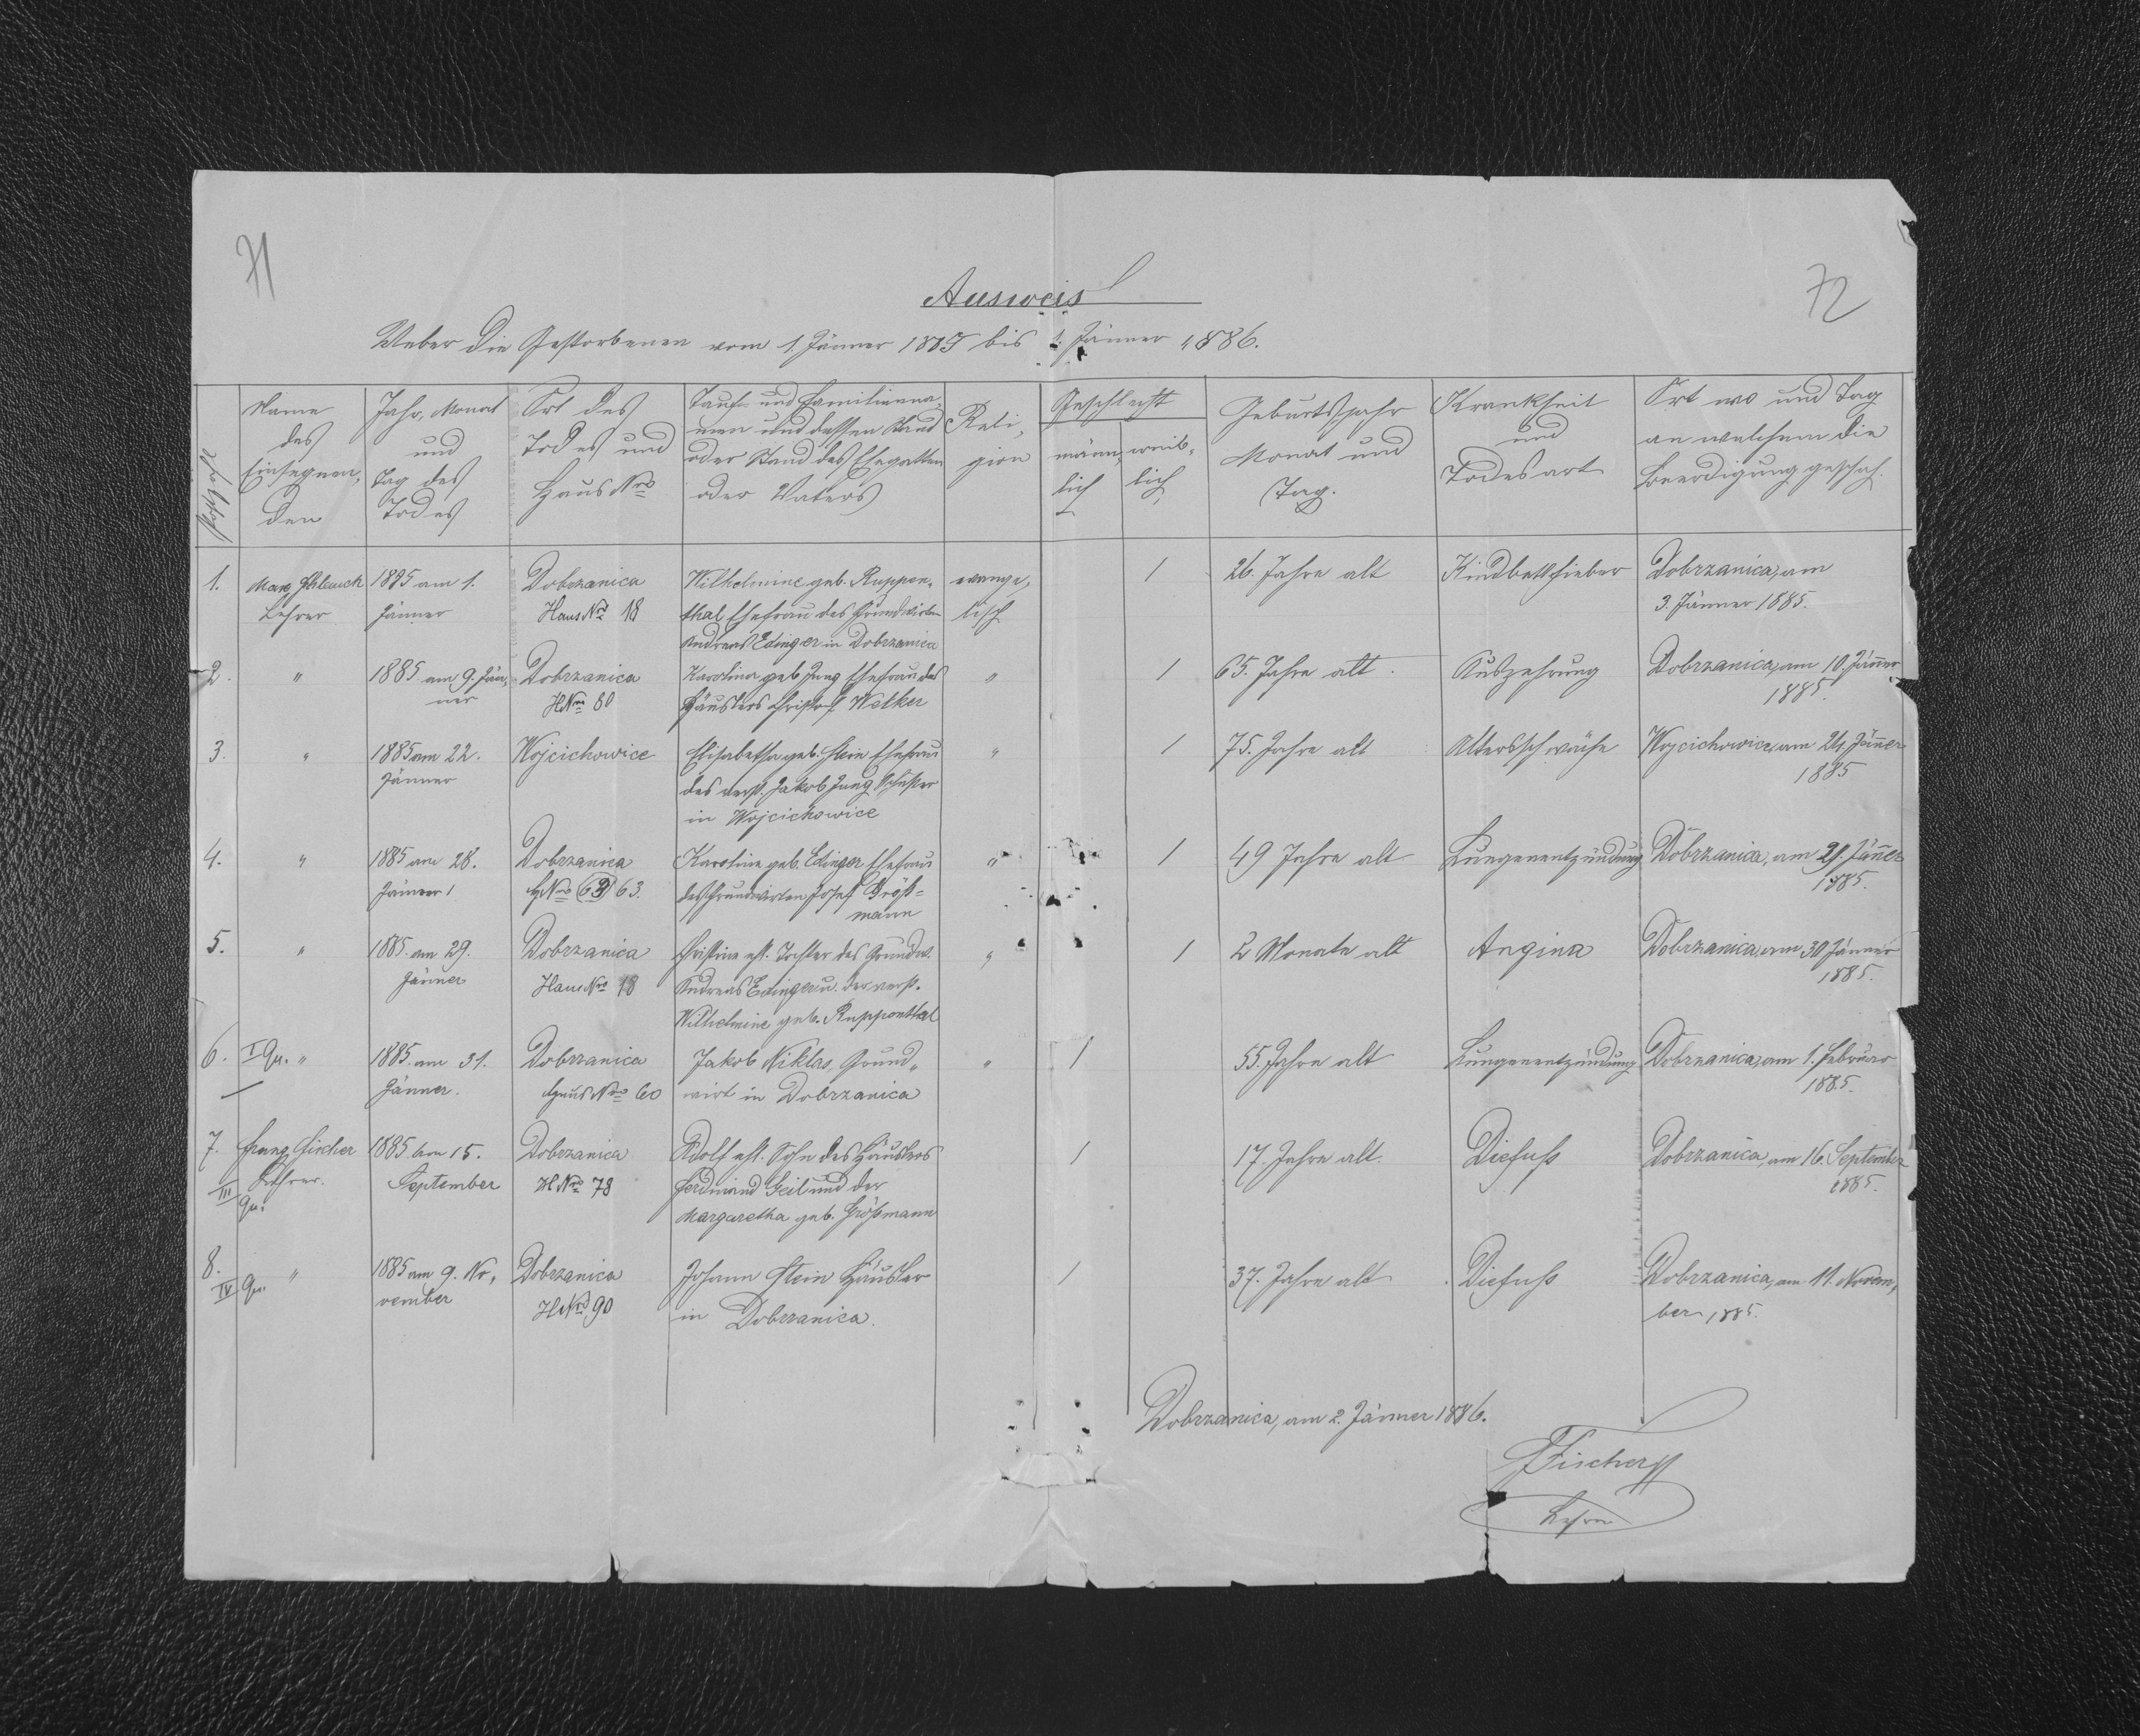 71
72
Ausweis
Ueber die Gestorbenen vom 1. Jänner 1885 bis 1. Jänner 1886.
Name des Einsegnen, den
Jahr, Monat und Tag des Todes
Ort des Todes und Haus Nro
Tauf- und Familienna, men und dessen Stand oder Stand des Ehegatten oder Vaters
Reli, gion
Geschlecht
männ, lich
weib, lich
Geburtsjahr Monat und Tag.
Krankheit und Todesart
Ort wo und Tag an welchem die Beerdigung geschah.
1.
Lehrer
1885 am 1.
Jänner
Dobrzanica
Haus Nro 18
Wilhelmine geb. Ruppen,
thal Ehefrau des Grundwirten
Andreas Edinger in Dobrzanica
evange,
lisch
1
26. Jahre alt
Kindbettfieber
Dobrzanica, am
3. Jänner 1885.
2.
"
1885 am 9. Jän,
ner
Dobrzanica
HNro 80
Karolina geb. Jung Ehefrau des
Häuslers Christof Welker
"
1
65. Jahre alt.
Auszehrung
Dobrzanica, am 10. Jänner
1885.
3.
"
1885 am 22.
Jänner
Wojcichowice
Elisabetha geb. Stein Ehefrau
des verst. Jakob Jung Schuster
in Wojcichowice
"
1
75. Jahre alt
Altersschwäche
Wojcichowice, am 24. Jänner
1885
4.
"
1885 am 28.
Jänner
Dobrzanica
HNro 63.
Karoline geb. Edinger Ehefrau
des Grundwirten Josef Größ=
mann
"
1
49 Jahre alt
Lungenentzündung
Dobrzanica, am 29. Jänner
1885.
5.
"
1885. am 29.
Jänner
Dobrzanica
Haus Nro 18
Christine ehl. Tochter des Grundw.
Andreas Edinger u. der verst.
Wilhelmine geb. Ruppenthal
"
1
2 Monate alt
Angina
Dobrzanica, am 30 Jänner
1885.
6.
I Qu. "
1885. am 31.
Jänner.
Dobrzanica
Haus Nro 60
Jakob Niklas, Grund,
wirt in Dobrzanica
"
1
55. Jahre alt
Lungenentzündung
Dobrzanica, am 1. Februar
1885.
7.
III Qu.
Franz Fischer
Lehrer.
1885. am 15.
September
Dobrzanica
HNro 78
Adolf ehl. Sohn des Häuslers
Ferdinand Geil und der
Margaretha geb. Größmann
1
17. Jahre alt.
Diefuß
Dobrzanica, am 16. September
1885.
8.
IV Qu.
"
1885 am 9. No,
vember
Dobrzanica
HNro 90
Johann Stein Häusler
in Dobrzanica.
1
37. Jahre alt
Diefuß
Dobrzanica, am 11. Novem,
ber 1885.
Dobrzanica, am 2. Jänner 1886.
FFischer
Lehrer